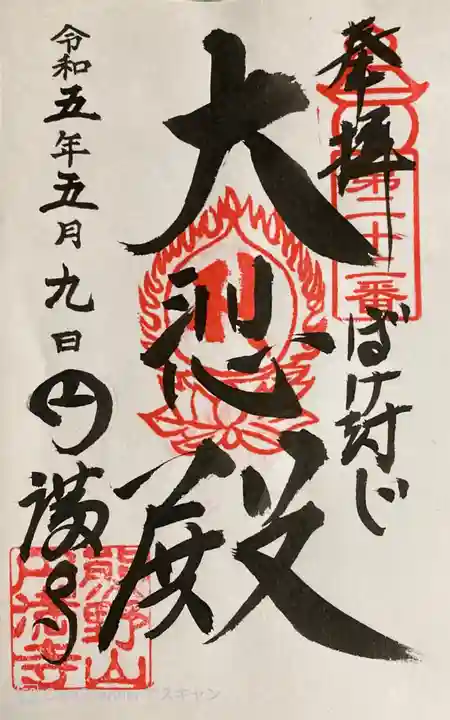 奉拝
第二十二番
ぼけ封じ
大悲殿
令和五年五月九日
円満寺
熊野山
円満寺
スキャン